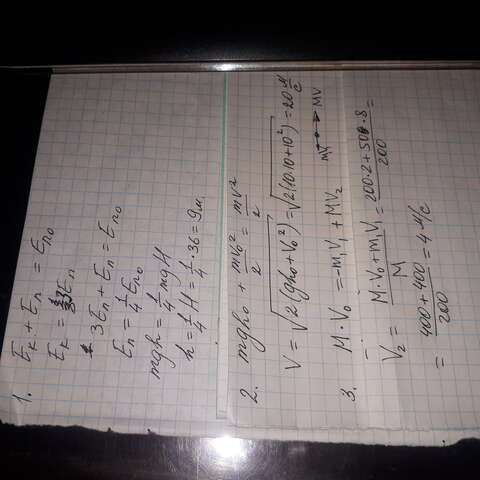 1. Eк + Eп = Eпо
Eк = 3Eп
3Eп + Eп = Eпо
Eп = 1/4 Eпо
mgh = 1/4 mgH
h = 1/4 H = 1/4 · 36 = 9 м.
2. mgh₀ + mv₀²/2 = mv²/2
V = √2(gh₀ + V₀²) = √2(10·10 + 10²) = 20 м/с
3. M · V₀ = -m₁V₁ + MV₂
mV MV
V₂ = M · V₀ + m₁V₁/M = 200·2 + 50·8/200 =
= 400 + 400/200 = 4 м/с